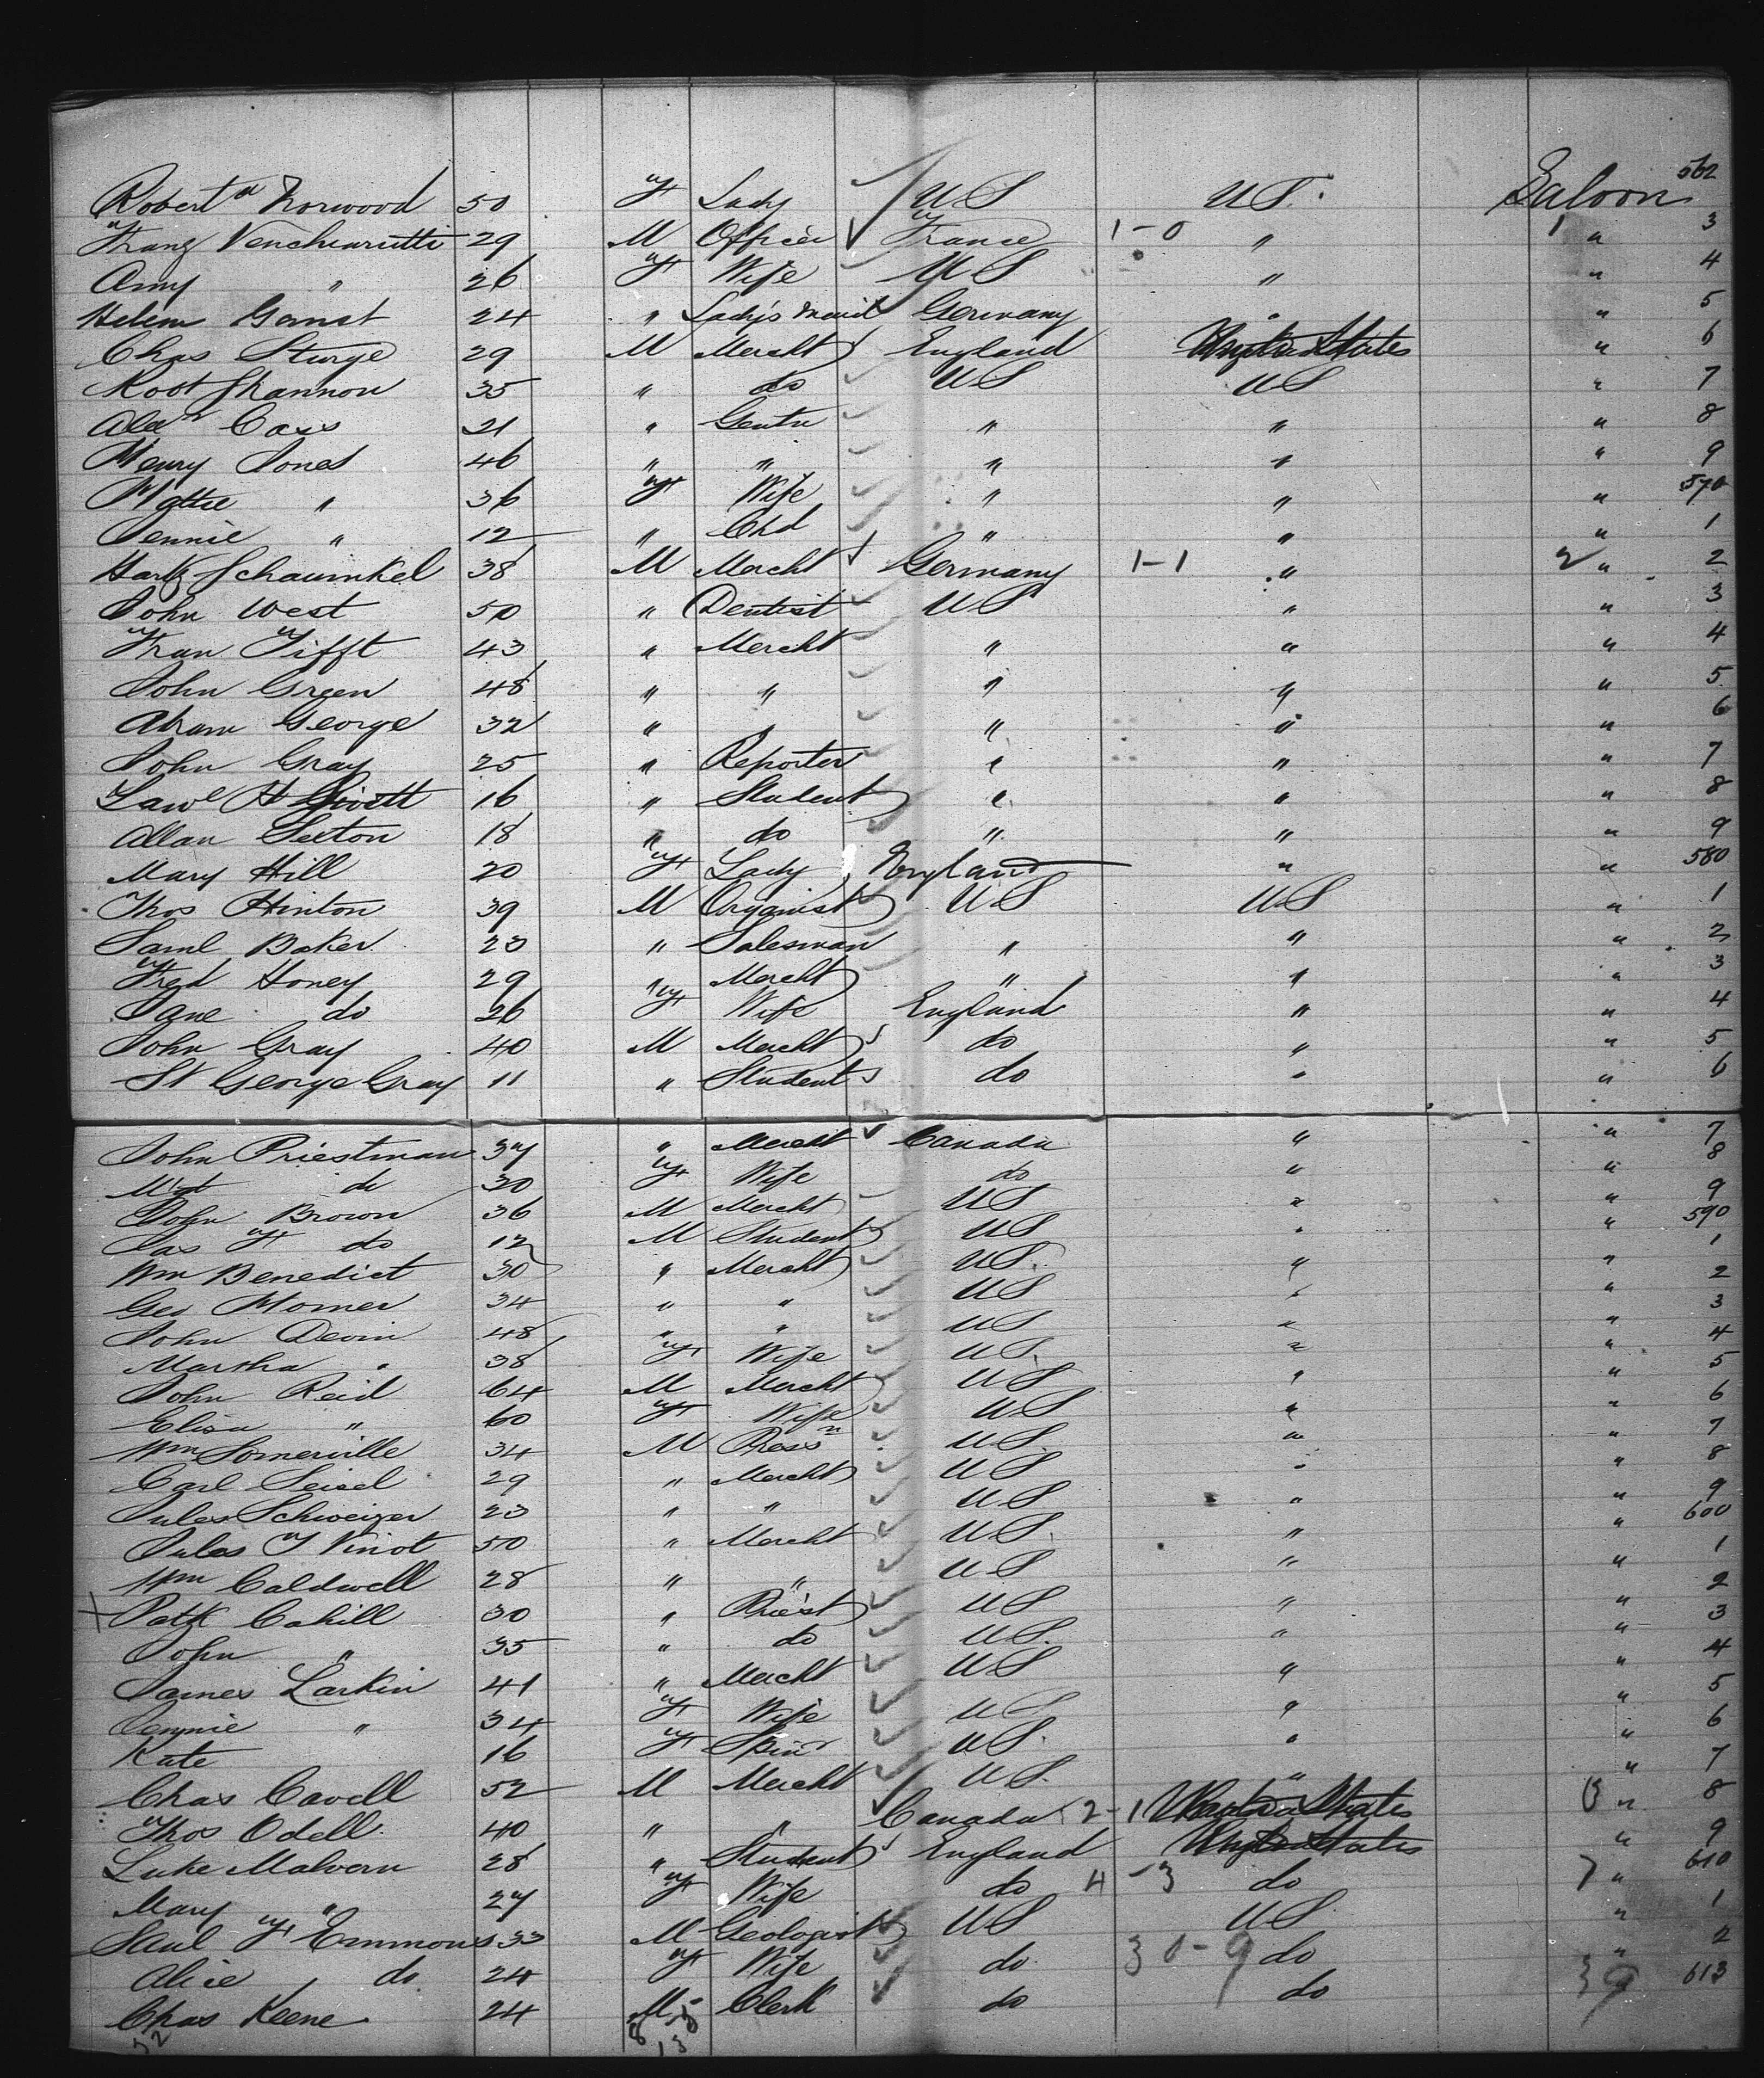 Robert a Norwood 50 F Lady US US. Saloon 562
Franz Venchiarutti 29 M Officer France 1-0 " 1 " 3
Amy " 26 F Wife US " " 4
Helem Ganst 24 " Lady's Maid Germany " 5
Chas Sturge 29 M Mercht England United States " 6
Robt Shannon 35 " do US US " 7
Alexr Cass 21 " Gentn " " " 8
Henry Jones 46 " " " " " 9
Mattie " 36 F Wife " " " 570
Jennie " 12 " Chd " " " 1
Hartz Schaumkel 38 M Mercht Germany 1-1 " 2 " 2
John West 50 " Dentist US " " 3
Fran Tifft 43 " Mercht " " " 4
John Green 48 " " " " " 5
Abram George 32 " " " " " 6
John Gray 25 " Reporter " " " 7
Lawe H 16 " Student " " " 8
Allan Sexton 18 " do " " " 9
Mary Hill 20 F Lady England " " 580
Thos Hinton 39 M Organist US US " 1
Saml Baker 23 " Salesman " " " 2
Fred Honey 29 " Mercht " " " 3
Jane do 26 F Wife England " " 4
John Gray 40 M Mercht do " " 5
St George Gray 11 " Student do " " 6
John Priestman 37 " Mercht Canada " " 7
do 30 F Wife do " " 8
John Brown 36 M Mercht US " " 9
Jas F do 12 M Student US " " 590
Wm Benedict 30 " Mercht US. " " 1
Geo Homer 34 " " US " " 2
John Devin 48 " " US " " 3
Martha " 38 F Wife US. " " 4
John Reid 64 M Mercht US " " 5
Elisa " 60 F Wife US " " 6
Wm Somerville 34 M US. " " 7
Carl Seisel 29 " Mercht US " " 8
Jules Schweizer 23 " " US " " 9
Jules T Vinot 50 " Mercht US. " " 600
Wm Caldwell 28 " " US " " 1
Patk Cahill 30 " Priest US " " 2
John " 35 " do US. " " 3
James Larkin 41 " Mercht US " " 4
Jennie " 34 F Wife US " " 5
Kate 16 F Spinr US. " " 6
Chas Cavell 52 M Mercht US. " " 7
Thos Odell 40 " " Canada 2-1 United States " 8
Luke Malvern 28 " Student England United States " 9
Mary " 27 F Wife do 4-3 do 7 " 610
Saml F Emmons 33 M Geologist US US. " 1
Alice " do 24 F Wife do 30-9 do " 2
Chas Keene 24 M Clerk do do 39 613